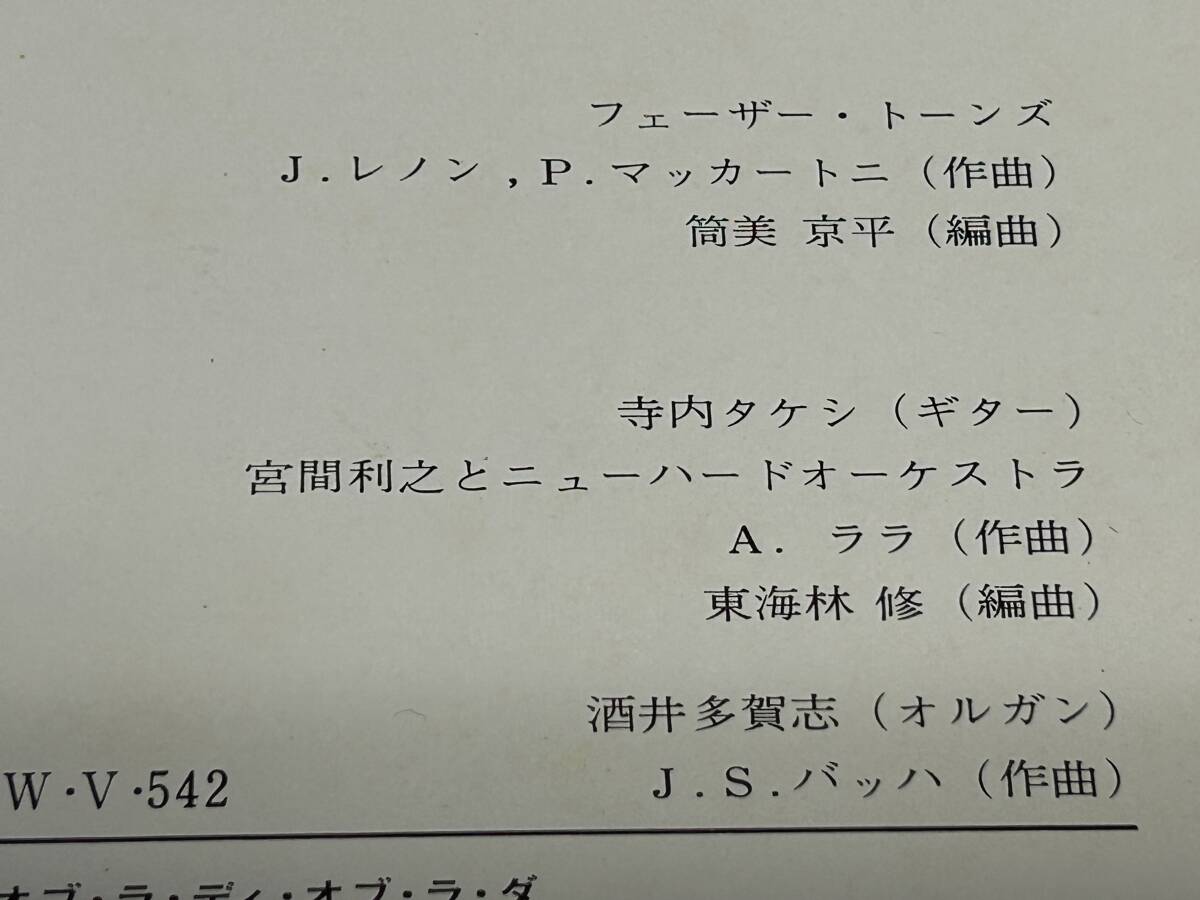 フェーザー・トーンズ
J.レノン,P.マッカートニ(作曲)
筒美 京平(編曲)
寺内タケシ(ギター)
宮間利之とニューハードオーケストラ
A. ララ(作曲)
東海林 修(編曲)
酒井多賀志(オルガン)
W・V・542 J.S.バッハ(作曲)
オブ・ラ・ディ・オブ・ラ・ダ